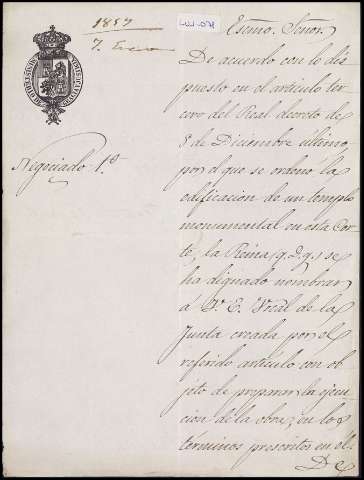 1857
7. Enero
Negociado 1º
Escmo. Señor.
De acuerdo con lo dis
puesto en el artículo ter
cero del Real decreto de
8 de Diciembre último,
por el que se ordenó la
edificacion de un templo
monumental en esta Cor
te, la Reina (q. D. g.) se
ha dignado nombrar
á V. E. Vocal de la
Junta creada por el
referido artículo con ob
jeto de preparar la ejecu
cion de la obra; en los
términos prescritos en el.
De